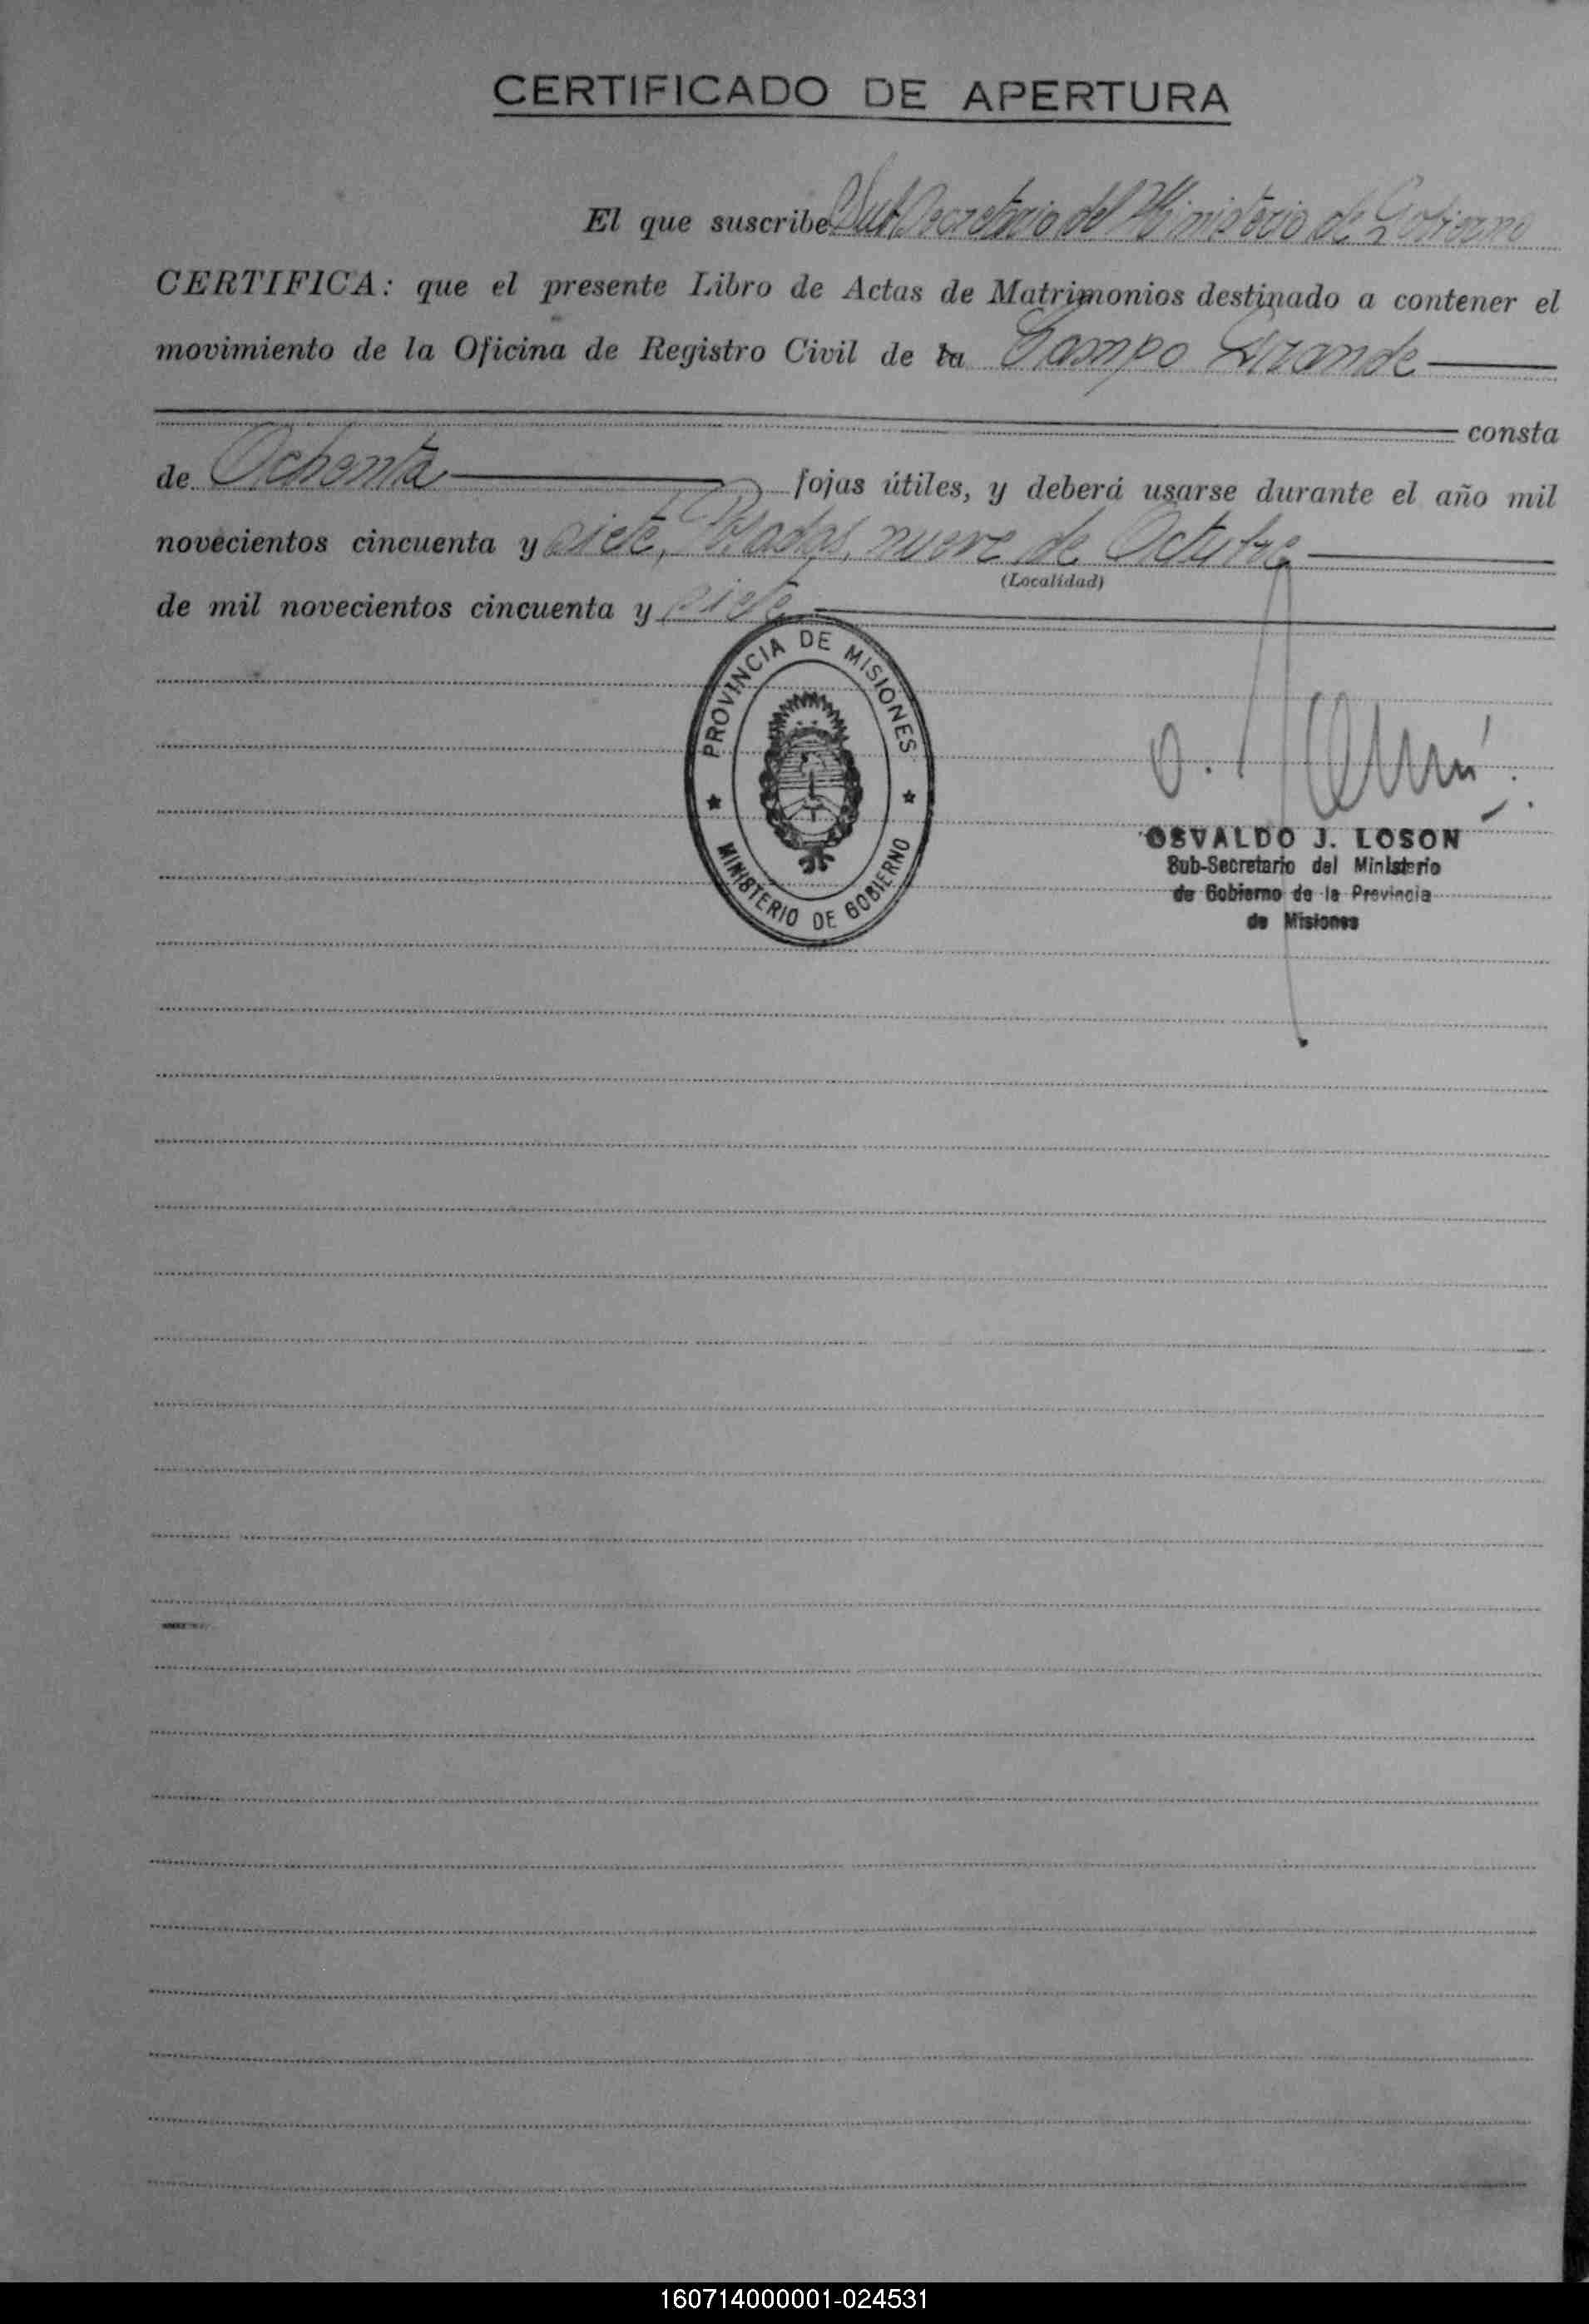 CERTIFICADO DE APERTURA
El que suscribe Sub Secretario del Ministerio de Gobierno
CERTIFICA: que el presente Libro de Actas de Matrimonios destinado a contener el
movimiento de la Oficina de Registro Civil de la Campo Grande
consta
de Ochenta fojas útiles, y deberá usarse durante el año mil
novecientos cincuenta y siete, Posadas, nueve de Octubre
(Localidad)
de mil novecientos cincuenta y siete
PROVINCIA DE MISIONES
MINISTERIO DE GOBIERNO
OSVALDO J. LOSON
Sub-Secretario del Ministerio
de Gobierno de la Provincia
de Misiones
160714000001-024531